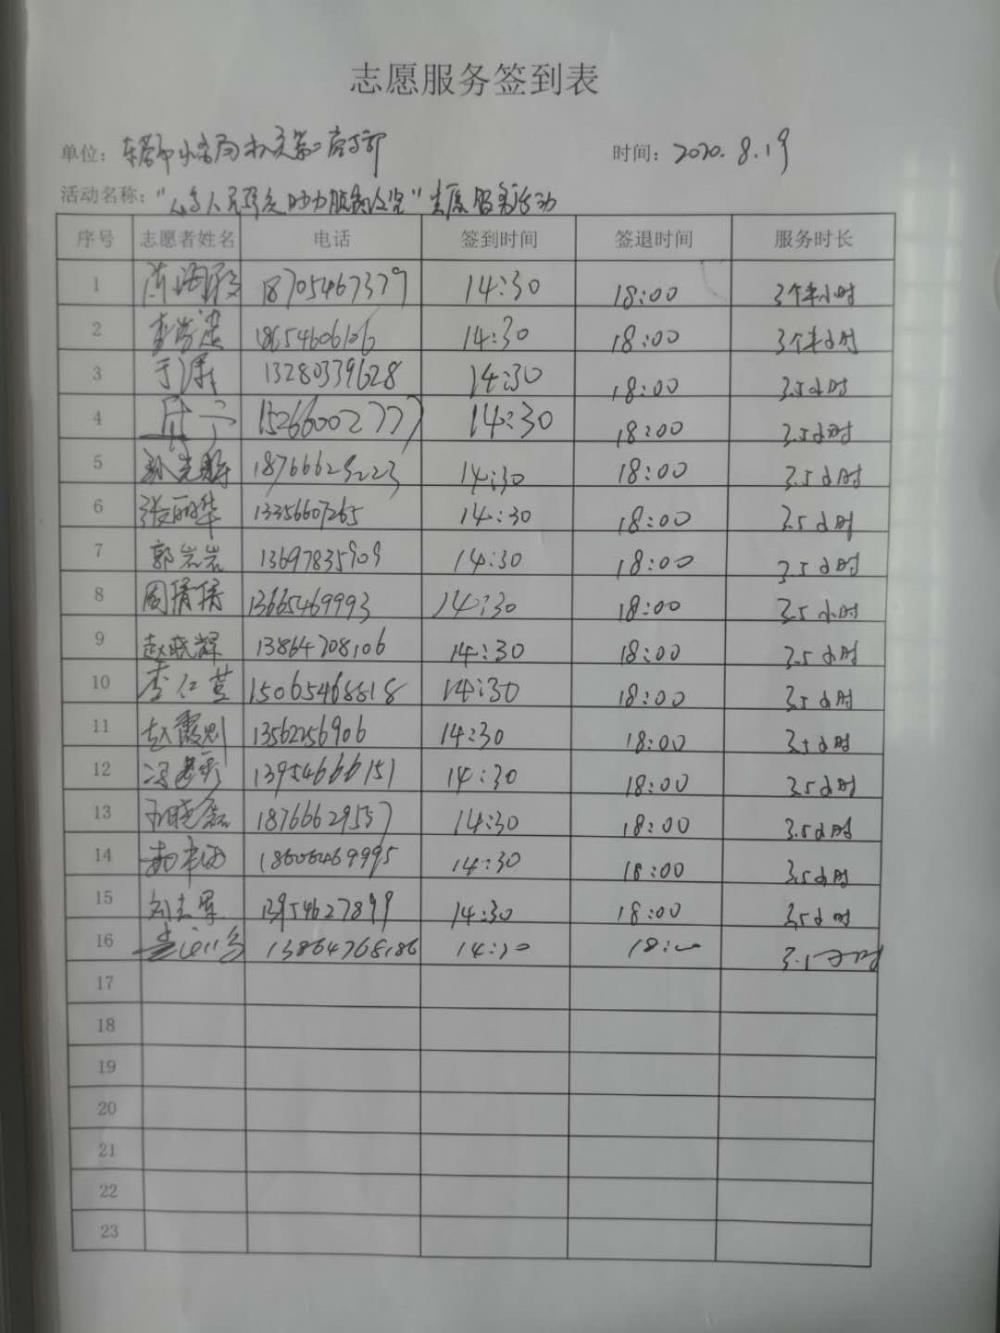 志愿服务签到表
单位：东营市水务局机关第二党支部 时间：2020.8.19
活动名称： 助力脱贫攻坚"志愿服务活动
序号 志愿者姓名 电话 签到时间 签退时间 服务时长
1 18705467379 14:30 18:00 3个半小时
2 18654606106 14:30 18:00 3个半小时
3 13280339628 14:30 18:00 3.5小时
4 15266002777 14:30 18:00 3.5小时
5 14:30 18:00 3.5小时
6 张丽华 13356607265 14:30 18:00 3.5小时
7 郭岩岩 13697835909 14:30 18:00 3.5小时
8 周倩倩 13665469993 14:30 18:00 3.5小时
9 赵晓辉 13864708106 14:30 18:00 3.5小时
10 李仁莹 15065468818 14:30 18:00 3.5小时
11 赵霞 13562256906 14:30 18:00 3.5小时
12 13954666151 14:30 18:00 3.5小时
13 18766629557 14:30 18:00 3.5小时
14 18606469995 14:30 18:00 3.5小时
15 刘志军 13954627899 14:30 18:00 3.5小时
16 13864768186 14:30 18:00 3.5小时
17
18
19
20
21
22
23